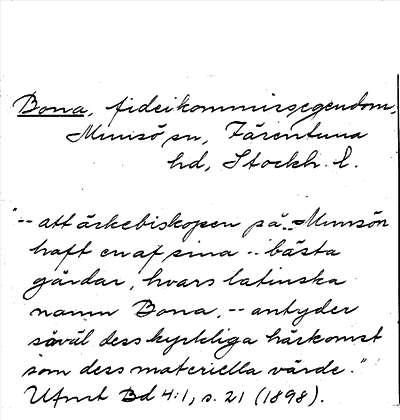 Bona, fideikommissegendom,
Munsö sn, Färentuna
hd, Stockh. l.
"-- att ärkebiskopen på .. Munsön
haft en af sina .. bästa
gårdar, hvars latinska
namn Bona, -- antyder
såväl dess kyrkliga härkomst
som dess materiella värde."
Ufmt Bd 4:1, s. 21 (1898).